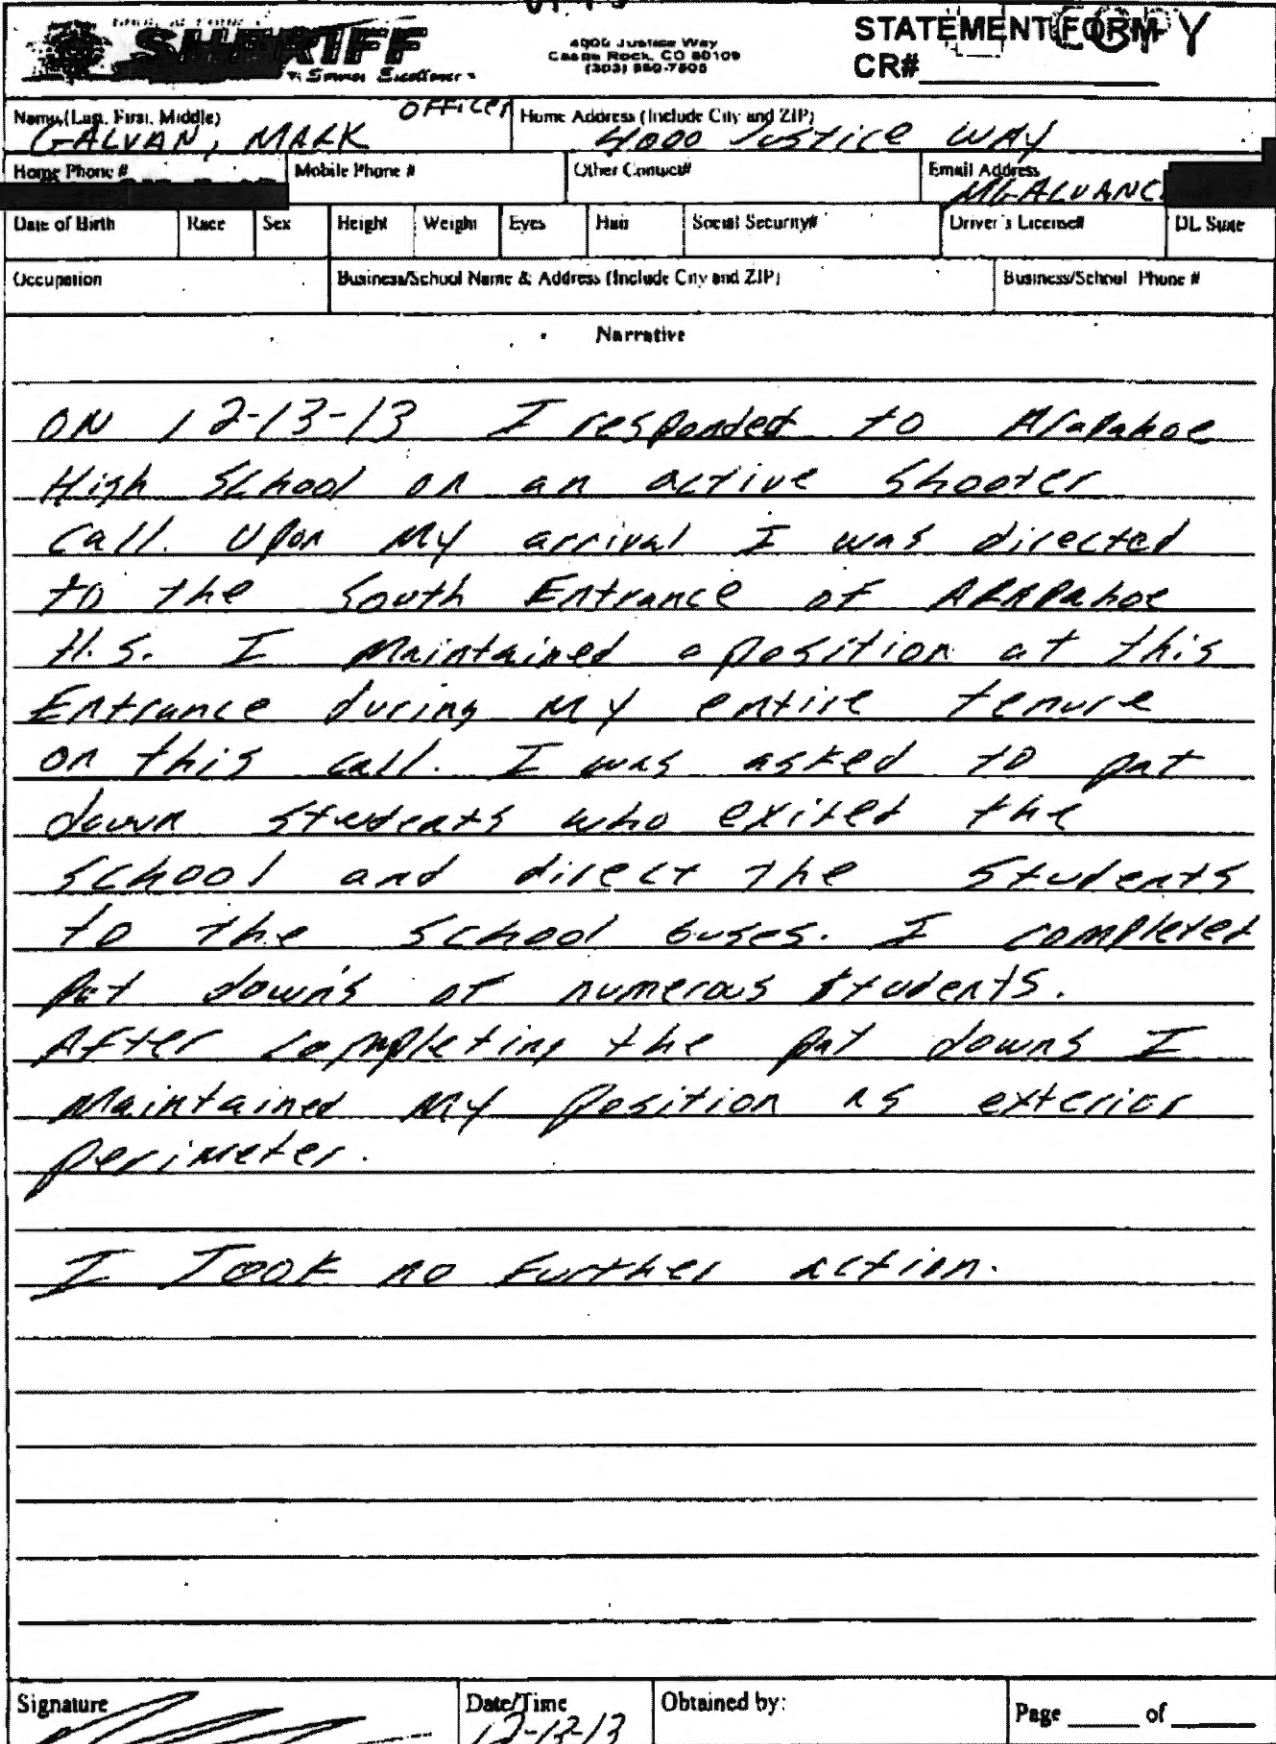 SHERIFF
4000 Justice Way
Castle Rock, CO 80109
(303) 660-7505
STATEMENT FORM
COPY
CR#
Name (Last, First, Middle)
OFFICER
GALVAN, MARK
Home Address (Include City and ZIP)
4000 Justice WAY
Home Phone #
Mobile Phone #
Other Contact#
Email Address
MGALVAN
Date of Birth Race Sex Height Weight Eyes Hair Social Security# Driver's License# DL State
Occupation
Business/School Name & Address (Include City and ZIP)
Business/School Phone #
Narrative
ON 12-13-13 I responded to Arapahoe
High School on an active shooter
call. Upon my arrival I was directed
to the South Entrance of ARAPahoe
H.S. I Maintained a position at this
Entrance during my entire tenure
on this call. I was asked to pat
down students who exited the
school and direct the students
to the school buses. I completed
pat down's of numerous students.
After completing the pat downs I
Maintained my position as exterior
perimeter.
I Took no further action.
Signature
Date/Time
12-13-13
Obtained by:
Page ____ of ____